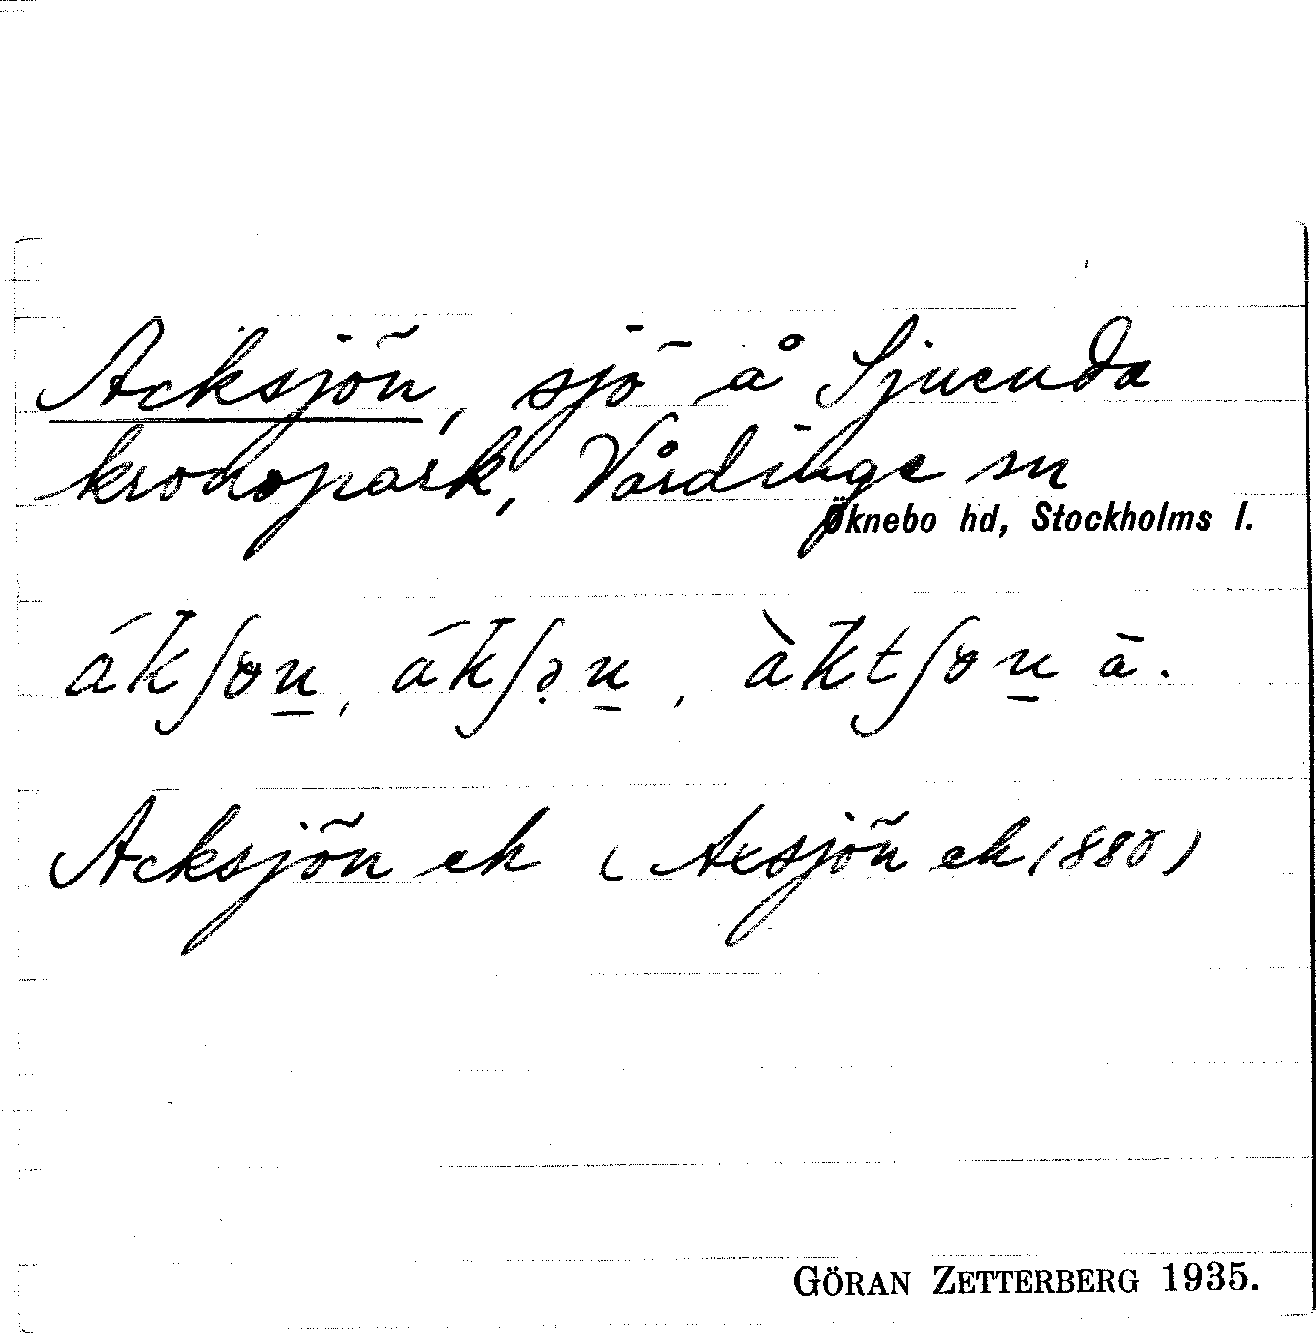 Acksjön, sjö å Sjuenda
kronopark, Vårdinge sn
Öknebo hd, Stockholms l.
ák̄ʃɵn̲, ák̄ʃə̣n̲, àk̄tʃɵn̲ ā.
Acksjön ek (Axsjön ek 1880)
GÖRAN ZETTERBERG 1935.